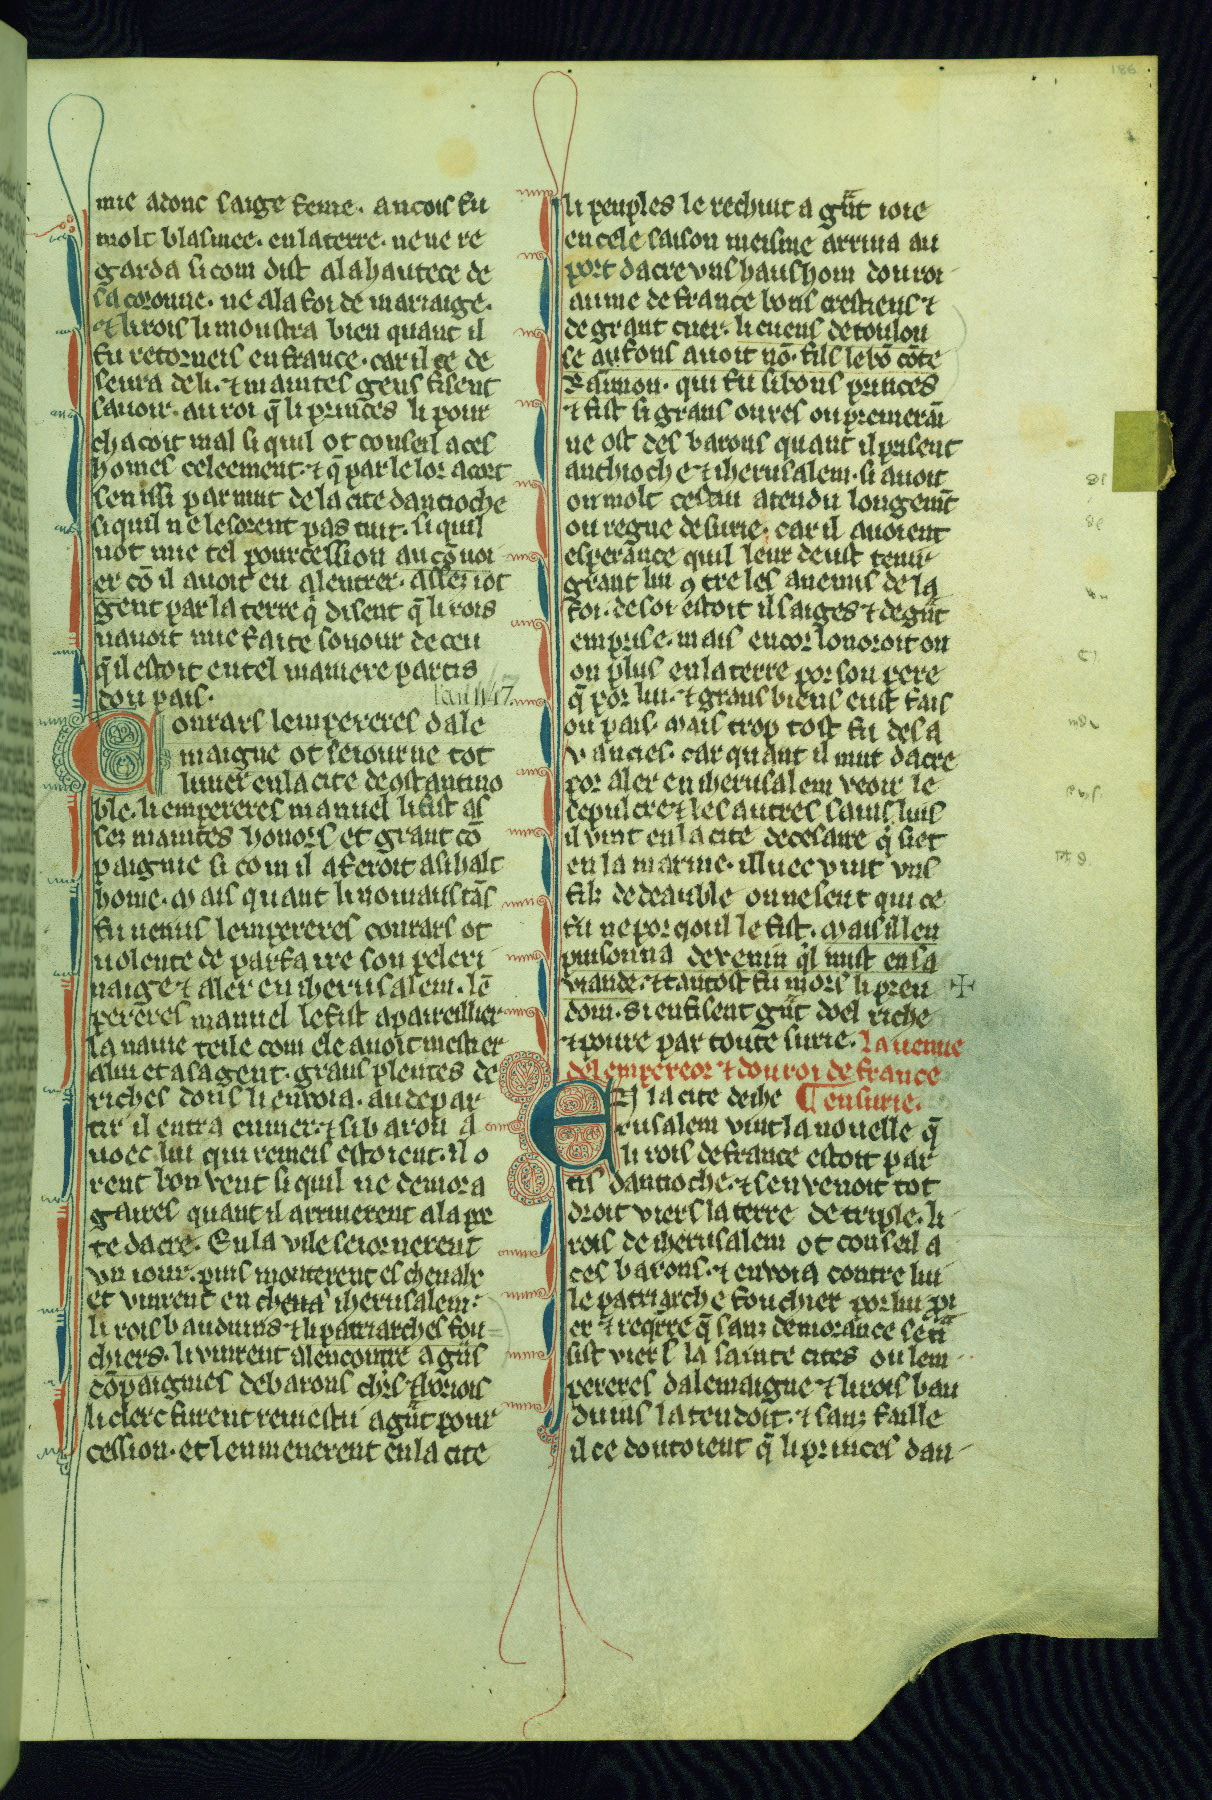 186
mie adonc saige feme. ancois fu
molt blasmee. en la terre. ne ne re
garda si com dist a la hautece de
sa coronne. ne a la foi de mariaige.
et li rois li moustra bien quant il
fu retorneis en france. car il ce de
seura de li. ⁊ maintes gens fisent
sauoir. au roi q̄ li princes li pour
chacoit mal si quil ot conseil a ces
homes celeement. ⁊ q̄ par le lor acort
sen issi par nuit de la cite dantioche
si quil ne le sorent pas tuit. si quil
not mie tel pourcession au cōuoi
er cō il auoit eu a lentrer. assez iot
gent par la terre q̄ disent q̄ li rois
nauoit mie faite sonour de ceu
q̄ il estoit en tel maniere partis
dou pais.
lan 1147.
Conrars lempereres dale
maigne ot seiourne tot
liuier en la cite de ostantino
ble. li empereres manuel li fist as
sez maintes honors et grant cō
paignie si com il aferoit a si halt
home. Mais quant li nouiaus tās
fu uenus lempereres conrars ot
uolente de parfaire son peleri
naige ⁊ aler en iherusalem. lē
pereres manuel le fist apareillier
la nauie teile com ele auoit mestier
a lui et a sa gent. grans plentes de
riches dons li enuoia. au depar
tir il entra en mer. ⁊ si baron a
uoec lui qui remeis estoient. il o
rent bon vent si quil ne demora
gaires quant il arriuerent a la por
te dacre. En la vile seiornerent
vn iour. puis monterent es cheualz
et vinrent en cheua iherusalem.
li rois bauduins ⁊ li patriarches fou
chiers. li vinrent a lencontre a grās
cōpaignies de barons chrs ⁊ boriois
li clerc furent reuestu a grāt pour
cession. et len menerent en la cite
li peuples le rechiut a grāt ioie
en cele saison meisme arriua au
port dacre vns haus hom dou roi
aume de france bons crestiens ⁊
de grant cuer. li cuens de toulou
se anfons auoit nō. fils le bō cōte
Raimon. qui fu si bons princes
⁊ fist si grans oures ou premerai
ne ost des barons quant il prisent
anthioche ⁊ iherusalem. si auoit
on molt cestui atendu longemēt
ou regne de surie. car il auoient
esperance quil leur deust tenir
grant liu 9tre les anemis de la
foi. de soi estoit il saiges ⁊ de grāt
emprise. mais encor lonoroit on
on plus en la terre por son pere
q̄ por lui. ⁊ grans biens eust fais
ou pais. Mais trop tost fu desa
vancies. car quant il mut dacre
por aler en iherusalem veoir le
sepulcre ⁊ les autres sains luis
il vint en la cite de cesaire q̄ siet
en la marine. illuec vint vns
filz de deauble on ne sent qui ce
fu ne por qoi il le fist. Mais il len
puisonna de venin q̄l mist en sa
viande. ⁊ tantost fu mors li preu
dom. si en fisent grāt doel riche
⁊ poure par toute surie. La uenue
del empereor ⁊ dou roi de france
¶ en surie.
En la cite de ihe
rusalem vint la nouelle q̄
li rois de france estoit par
tis dantioche. ⁊ sen venoit tot
droit viers la terre de triple. li
rois de iherusalem ot conseil a
ces barons. ⁊ enuoia contre lui
le patriarche fouchier por lui pi
er ⁊ reqrre q̄ sanz demorance sen
sist viers la sainte cites ou lem
pereres dalemaigne ⁊ li rois bau
duins latendoit. ⁊ sanz faille
il ce doutoient q̄ li princes dan